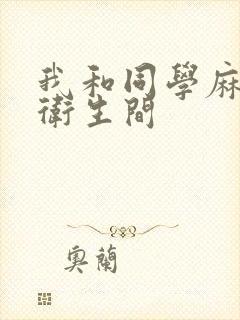 我和同學麻
衛生間
奧蘭